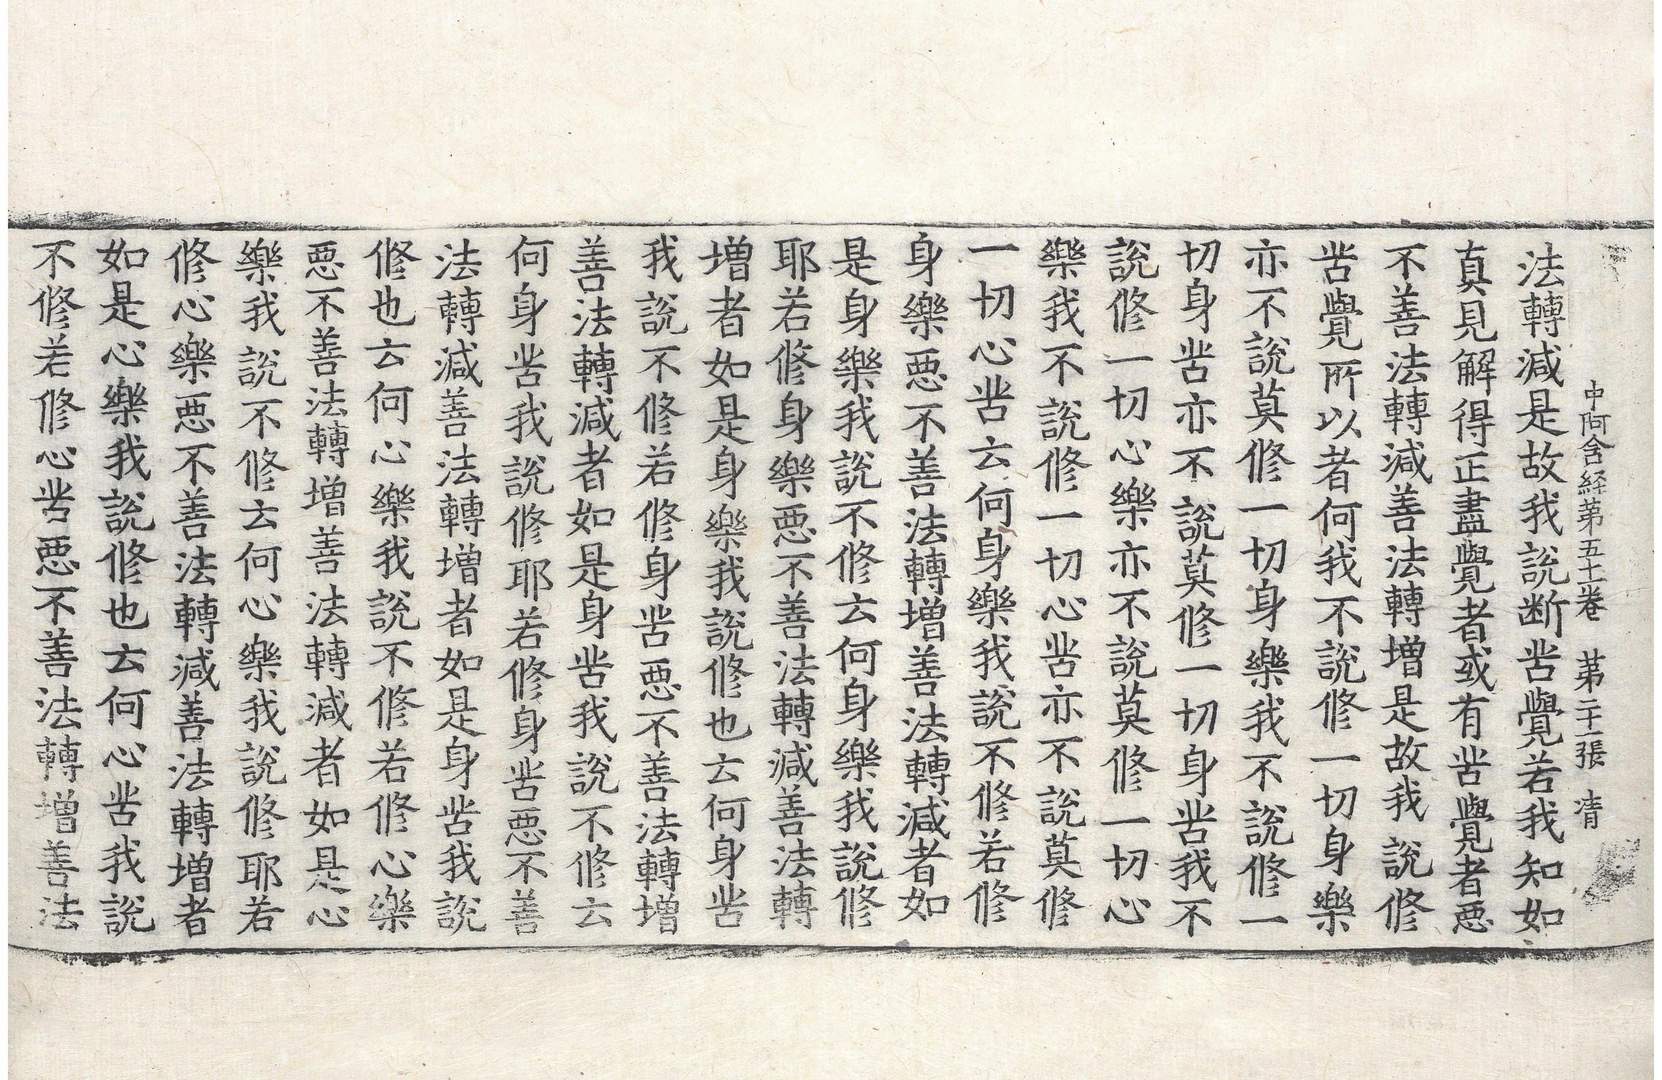 中阿含経第五十一卷 第二十一張 清
法轉減是故我說断苦覺若我知如
真見解得正盡覺者或有苦覺者惡
不善法轉減善法轉增是故我說修
苦覺所以者何我不說修一切身樂
亦不說莫修一切身樂我不說修一
切身苦亦不說莫修一切身苦我不
說修一切心樂亦不說莫修一切心
樂我不說修一切心苦亦不說莫修
一切心苦云何身樂我說不修若修
身樂惡不善法轉增善法轉減者如
是身樂我說不修云何身樂我說修
耶若修身樂惡不善法轉減善法轉
增者如是身樂我說修也云何身苦
我說不修若修身苦惡不善法轉增
善法轉減者如是身苦我說不修云
何身苦我說修耶若修身苦惡不善
法轉減善法轉增者如是身苦我說
修也云何心樂我說不修若修心樂
惡不善法轉增善法轉減者如是心
樂我說不修云何心樂我說修耶若
修心樂惡不善法轉減善法轉增者
如是心樂我說修也云何心苦我說
不修若修心苦惡不善法轉增善法